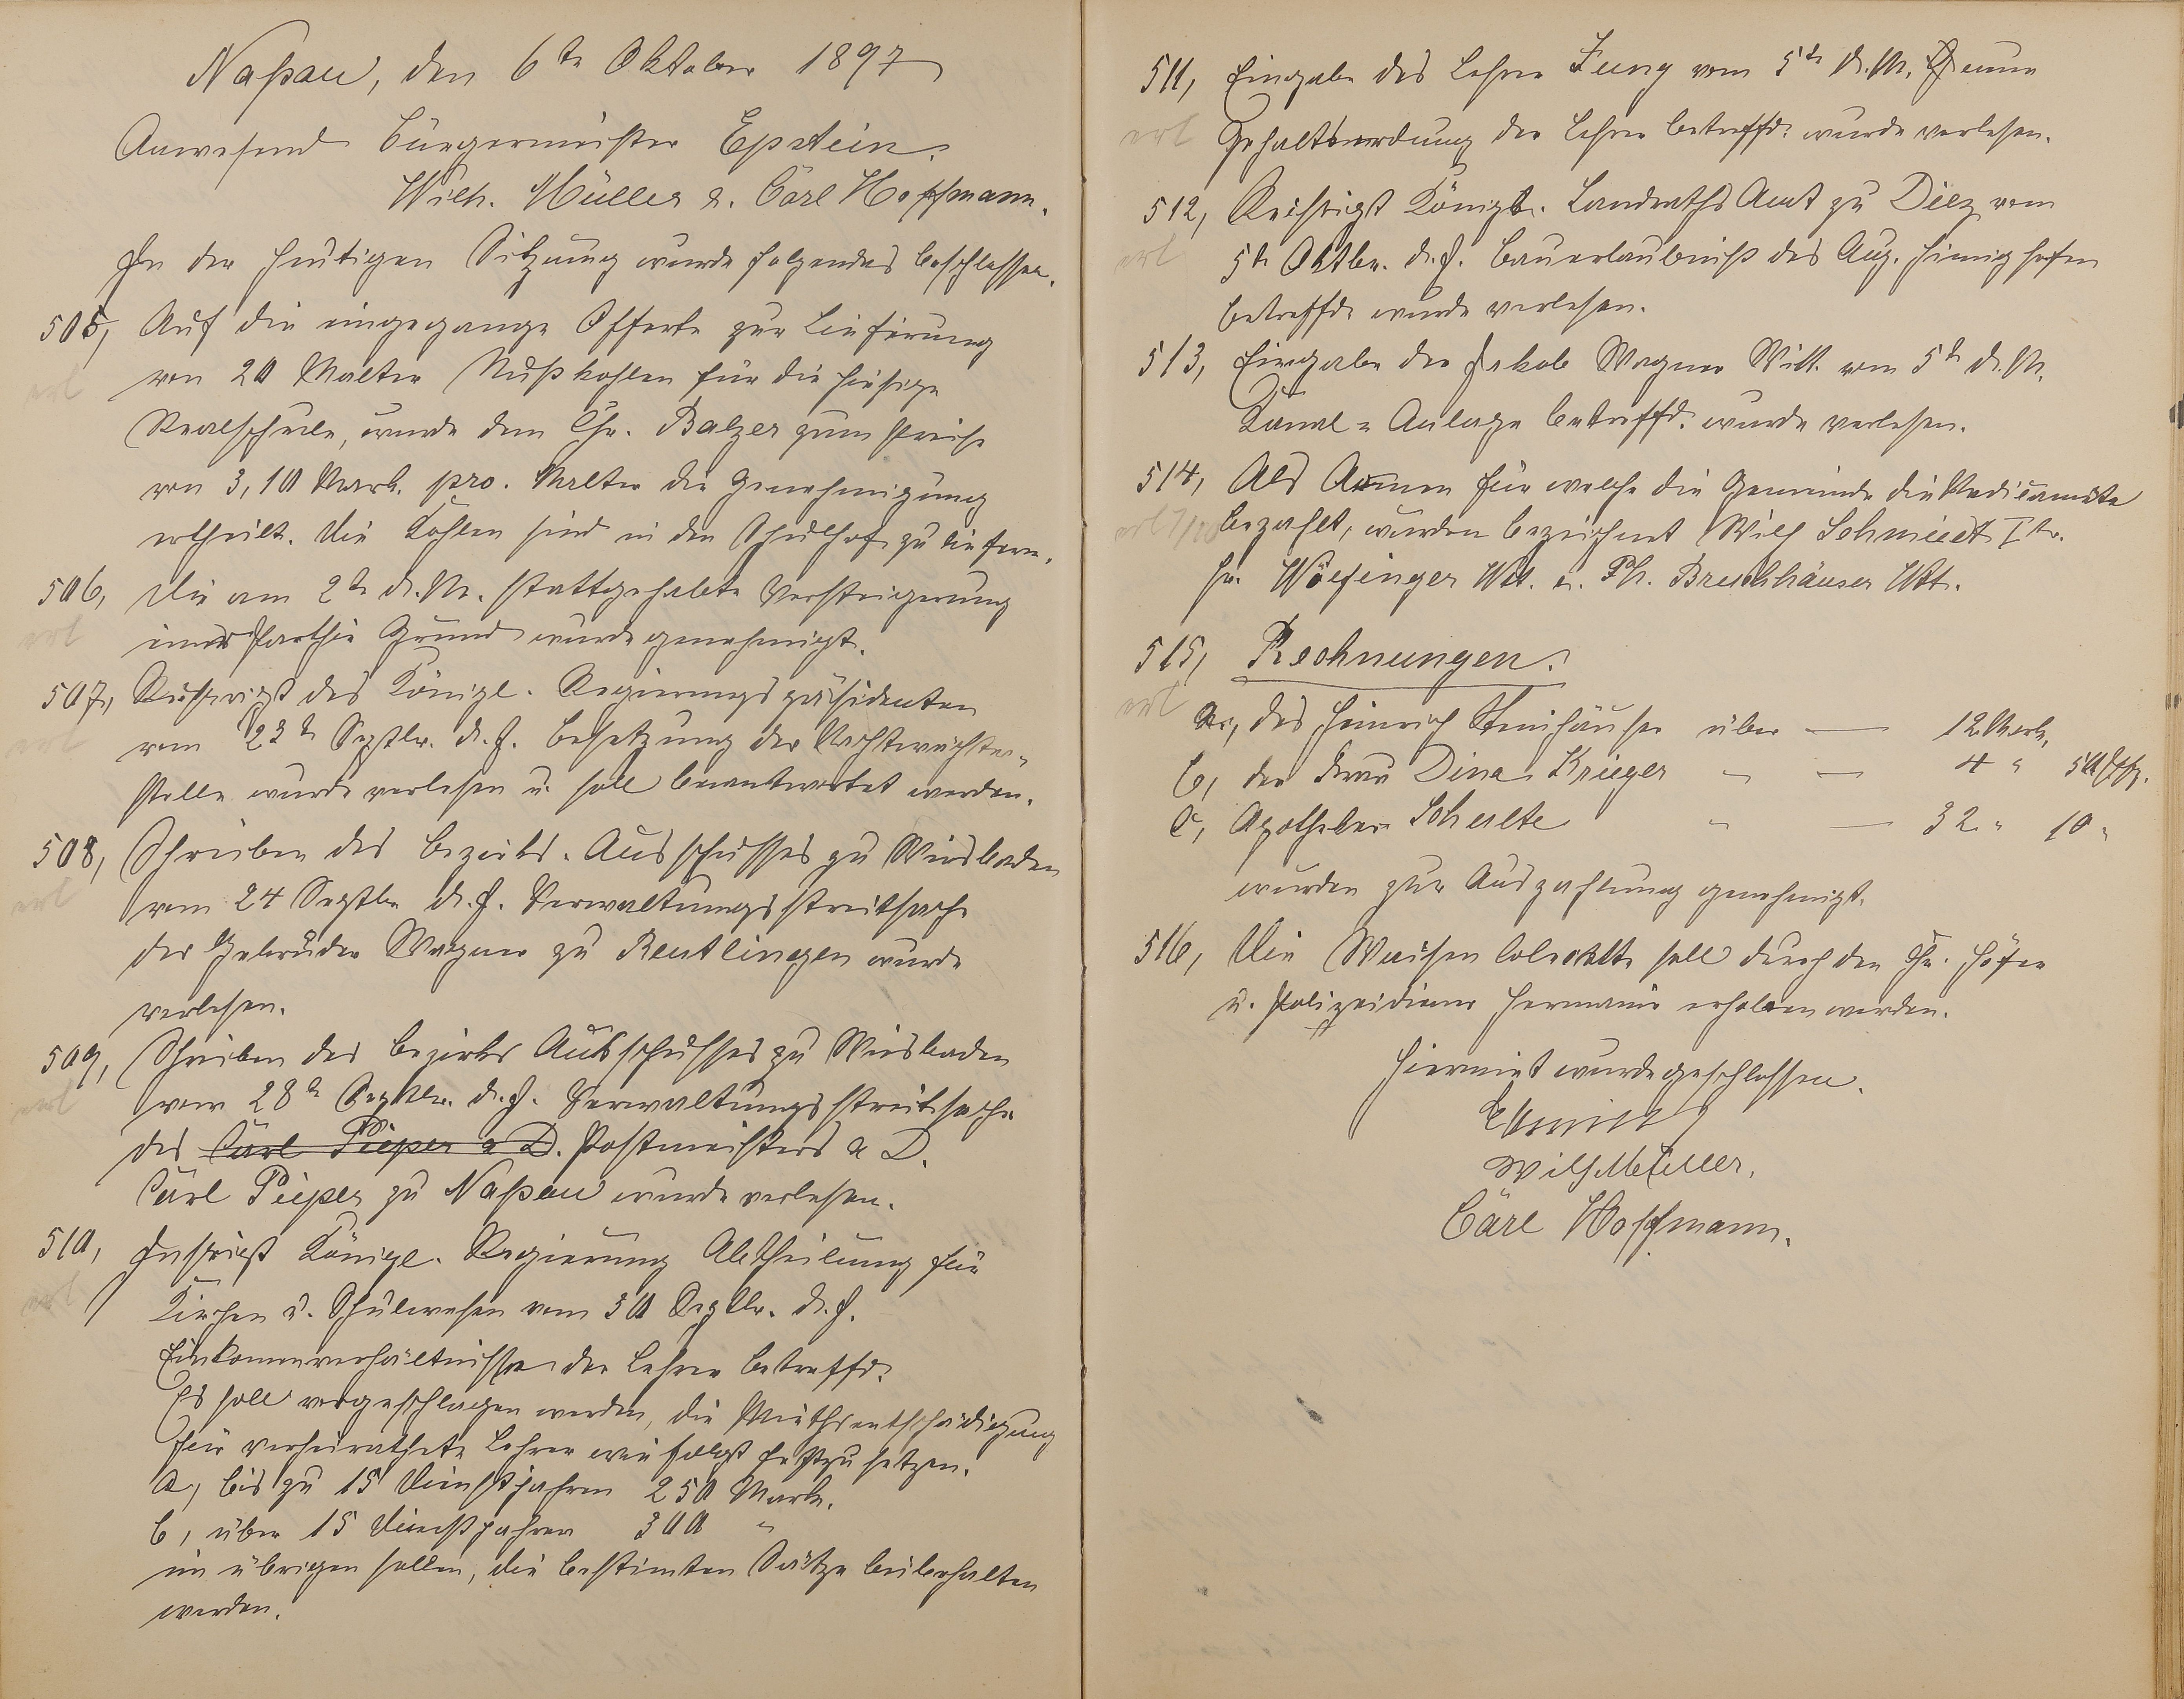 Naßau, den 6te Oktober 1897
Anwesend Bürgermeister Epstein.
Wilh. Müller u. Carl Hoffmann.
In der heutigen Sitzung wurde folgendes beschlossen.
505, Auf die eingegange Offerte zur Lieferung
erl von 20 Malter Nußkohlen für die hiesige
Realschule, wurde dem Chr. Balzer zum Preise
von 3,10 Mark. pro. Malter die Genehmigung
ertheilt. Die Kohlen sind in den Schulhof zu liefern.
506, Die am 2te d. M. stattgehabte Versteigerung
erl einer Parthie Grund wurde genehmigt.
507, Rescript des Königl. Regierungspräsidenten
erl vom 23te Septbr. d. J. Besetzung der Nachtwächter-
stelle wurde verlesen u. soll beantwortet werden.
508, Schreiben des Bezirks-Ausschusses zu Wiesbaden
erl vom 24 Septbr d. J. Verwaltungsstreitsache
der Gebrüder Wagner zu Reutlingen wurde
verlesen.
509, Schreiben des Bezirks Ausschusses zu Wiesbaden
erl vom 28te Septbr. d. J. Verwaltungsstreitsache
des Carl Pieper a D. Postmeisters a D.
Carl Pieper zu Naßau wurde verlesen.
510, Königl. Regierung Abtheilung für
erl Kirchen u. Schulwesen vom 30 Septbr. d. J.
Einkommverhältnisse der Lehrer betreffd.
Es soll vorgeschlagen werden, die Miethsentschädigung
für verheirathete Lehrer wie folgt festzusetzen.
a, bis zu 15 Dienstjahren 250 Mark.
b, über 15 Dienstjahren 300 "
im übrigen sollen, die bestimten Sätze beibehalten
werden.
511, Eingabe des Lehrer Jung vom 5te d. M. neue
erl Gehaltsordnung der Lehrer betreffd. wurde verlesen.
512, Königl. Landraths Amt zu Diez vom
erl 5te Oktbr. d. J. Bauerlaubniß des Aug.
betreffd. wurde verlesen.
513, Eingabe der Jakob Wagner Witt. vom 5te d. M.
Kanal-Anlage betreffd. wurde verlesen.
514, Als Armen für welche die Gemeinde die Medicamente
erl 7/10 bezahlt, wurden bezeichnet Wilh Schmidt Ite.
Wölfinger Wtt. u. Ph. Bruchhäuser Wtt.
515, Rechnungen.
erl a, des Heinrich Steinhäuser über — 12 Mark.
b, der Frau Dina Krieger " — 4 " 50 Pfg.
c, Apotheker Schulte " — 32 " 10 "
wurden zur Auszahlung genehmigt.
516, Die Waisen Colecte soll durch den Chr. Höfer
u. Polizeidiener Hermani erhoben werden.
Hiermit wurde geschlossen.
Wilh Müller.
Carl Hoffmann.